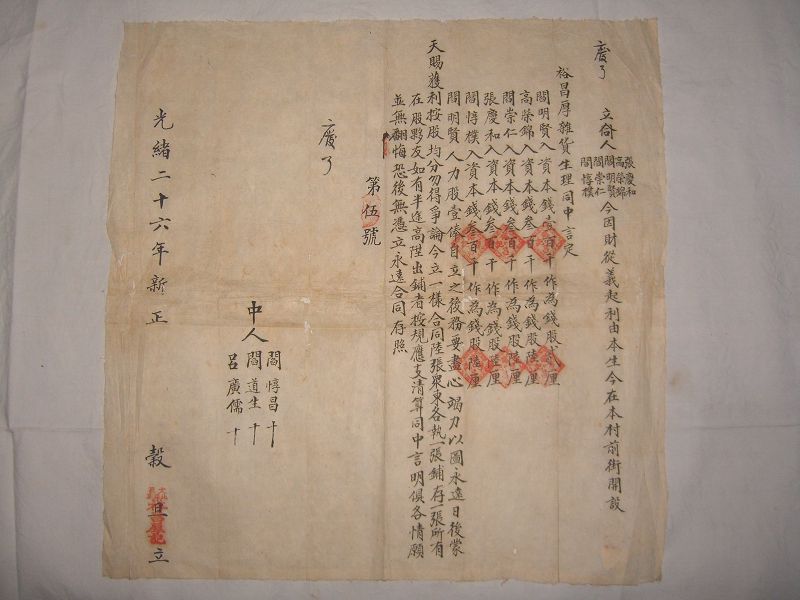 廢了
立仝人
張慶和
高榮錦
閻明賢
閻崇仁
閻惇樸
今因財從義起利由本生今在本村前街開設
裕昌厚雜貨生理同中言定
閻明賢入資本錢壹百千作為錢股貳厘
高榮錦入資本錢叁百千作為錢股陸厘
閻崇仁入資本錢叁百千作為錢股陸厘
張慶和入資本錢叁百千作為錢股陸厘
閻惇樸入資本錢叁百千作為錢股陸厘
閻明賢人力股壹俸自立之後務要盡心竭力以圖永遠日後蒙
天賜獲利按股均分勿得爭論今立一樣合同陸張眾東各執一張鋪存一張所有
在股夥友如有半途高陞出鋪者按規應支清算同中言明俱各情願
並無翻悔恐後無憑立永遠合同存照
第伍號
廢了
中人
閻惇昌十
閻道生十
呂廣儒十
光緒二十六年新正
穀旦立